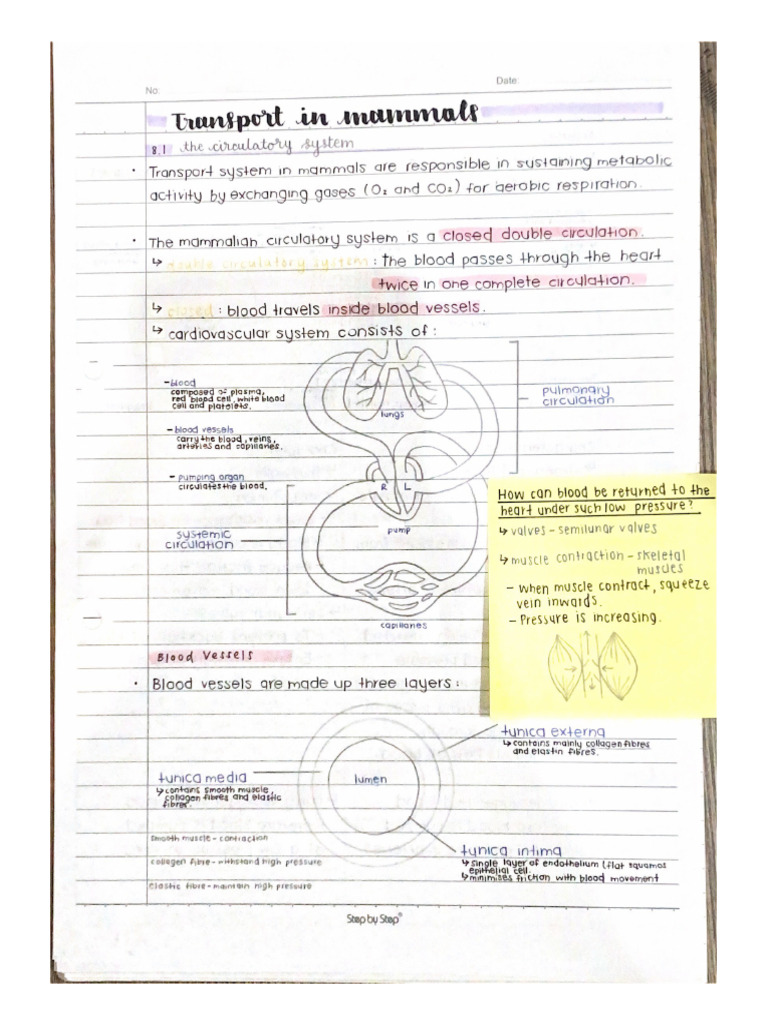 No:
Date:
Transport in mammals
8.1 the circulatory system
• Transport system in mammals are responsible in sustaining metabolic
activity by exchanging gases (O₂ and CO₂) for aerobic respiration.
• The mammalian circulatory system is a closed double circulation.
↳ double circulatory system : the blood passes through the heart
twice in one complete circulation.
↳ closed : blood travels inside blood vessels.
↳ cardiovascular system consists of :
- blood
composed of plasma,
red blood cell, white blood
cell and platelets.
- blood vessels
carry the blood, veins,
arteries and capillaries.
- pumping organ
circulates the blood.
lungs
pulmonary
circulation
R L
pump
systemic
circulation
capillaries
How can blood be returned to the
heart under such low pressure?
↳ valves - semilunar valves
↳ muscle contraction - skeletal
muscles
- When muscle contract, squeeze
vein inwards.
- Pressure is increasing.
Blood Vessels
• Blood vessels are made up three layers :
tunica externa
↳ contains mainly collagen fibres
and elastin fibres.
tunica media
↳ contains smooth muscle,
collagen fibres and elastic
fibres.
lumen
smooth muscle - contraction
collagen fibre - withstand high pressure
elastic fibre - maintain high pressure
tunica intima
↳ single layer of endothelium (flat squamos
epithelial cell.
↳ minimises friction with blood movement
Step by Step®